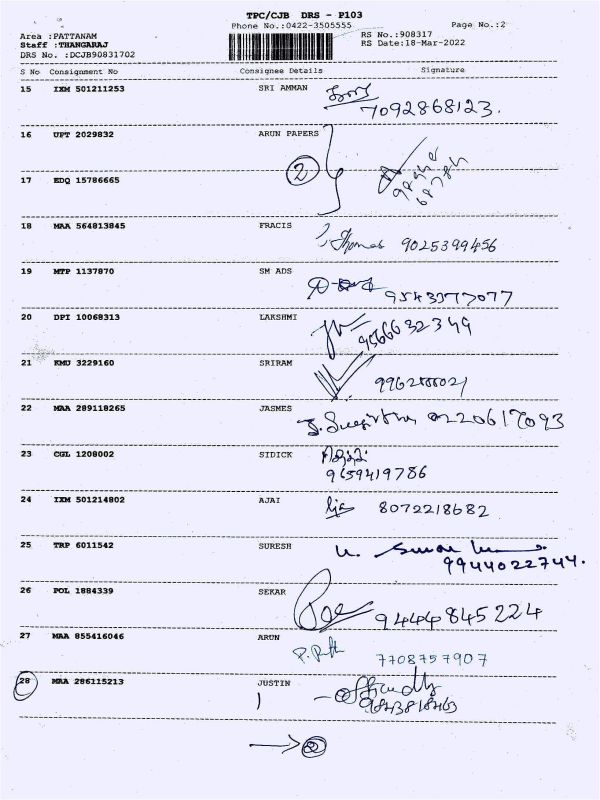 TPC/CJB DRS - P103
Phone No.:0422-3505555 Page No.:2
Area :PATTANAM RS No.:908317
Staff :THANGARAJ RS Date:18-Mar-2022
DRS No. :DCJB90831702
S No Consignment No Consignee Details Signature
15 IXM 501211253 SRI AMMAN
7092868123.
16 UPT 2029832 ARUN PAPERS
2
17 EDQ 15786665
18 MAA 564813845 FRACIS
Thomas 9025399456
19 MTP 1137870 SM ADS
9543377077
20 DPI 10068313 LAKSHMI
9566632349
21 KMU 3229160 SRIRAM
22 MAA 289118265 JASMES
23 CGL 1208002 SIDICK
9659419786
24 IXM 501214802 AJAI
8072218682
25 TRP 6011542 SURESH
9944022744.
26 POL 1884339 SEKAR
9444845224
27 MAA 855416046 ARUN
7708757907
28 MAA 286115213 JUSTIN
9843818463